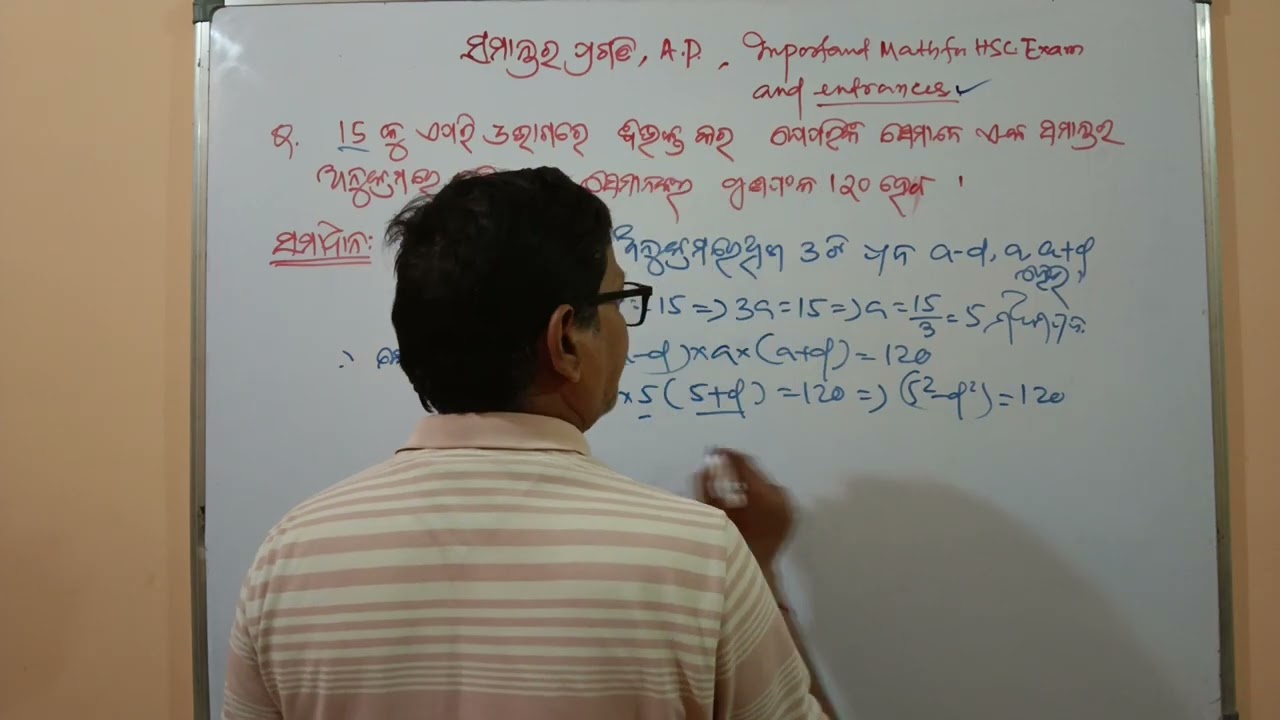 ସମାନ୍ତର ପ୍ରଗତି, A.P. , Importand Math fn HSC Exam
and entrances ✓
Q. 15 କୁ ଏପରି 3 ଭାଗରେ ବିଭକ୍ତ କର ଯେପରିକି ସେମାନେ ଏକ ସମାନ୍ତର
ଅନୁକ୍ରମରେ ସେମାନଙ୍କର ଗୁଣଫଳ 120 ହେବ ।
ସମାଧାନ: ଅନୁକ୍ରମରେ ଥିବା 3ଟି ପଦ a-d, a, a+d
ହେଉ ।
= 15 => 3a = 15 => a = 15/3 = 5
∴ -d) × a × (a+d) = 120
× 5 (5+d) = 120 => (5²-d²) = 120